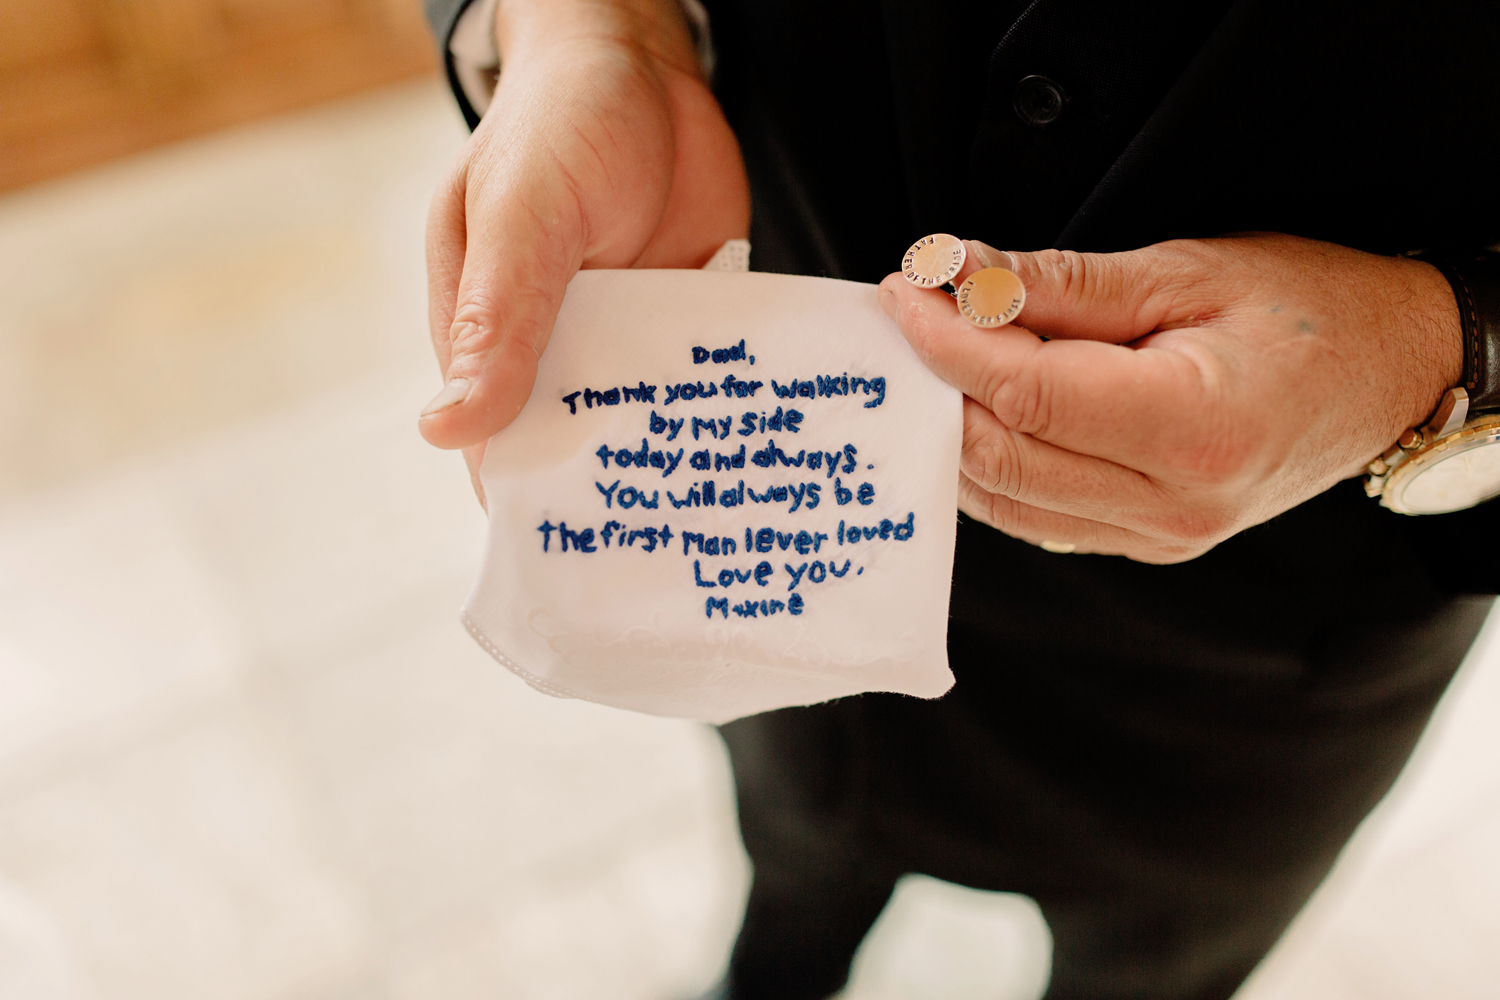 Dad,
Thank you for walking
by my side
today and always.
You will always be
the first Man I ever loved
Love you.
Maxine
FATHER OF THE BRIDE
I LOVED HER FIRST